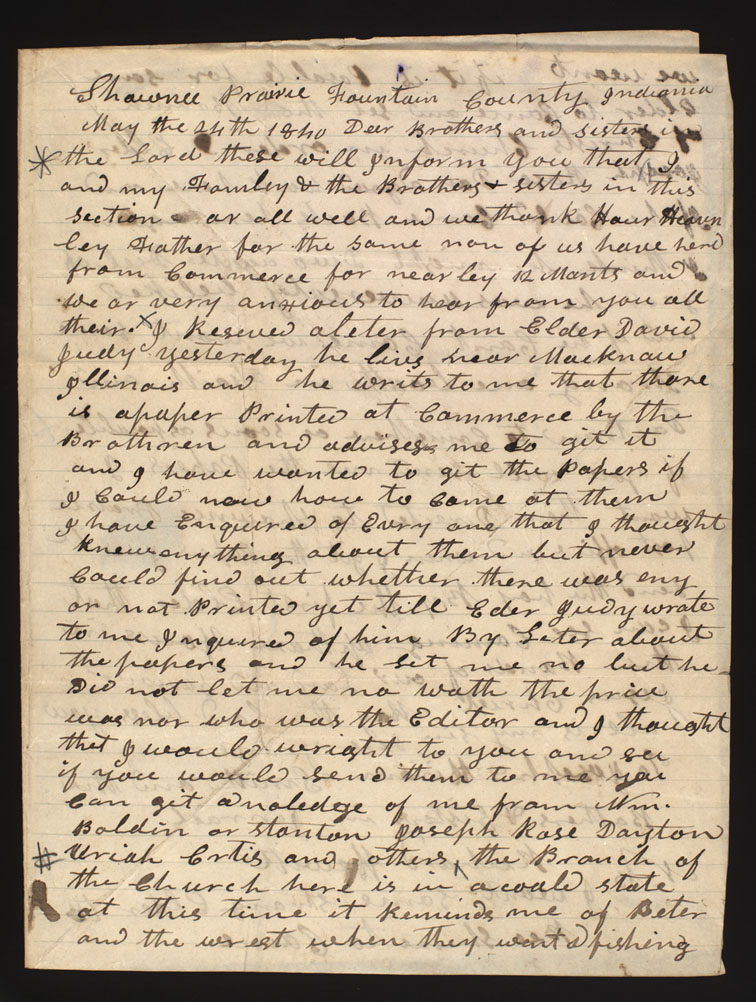 Shawnee Prairie Fountain County Indiania
May the 24th 1840 Dear Brothers and sisters in
the Lord these will Inform you that I
and my Famley & the Brothers & sisters in this
section or all well and we thank Hour Heavn
ley Father for the same non of us have herd
from Commerce for near ley 12 Monts and
we or very anxious to hear from you all
their. X I Reseved a leter from Elder David
Judy yesterday he lives near Macknaw
Illinois and he writs to me that thare
is a paper Printed at Commerce by the
Brothren and advises me to git it
and I have wanted to git the Papers if
I Could now how to Come at them
I have Enquired of Evry one that I thought
knew anything about them but never
Could find out whether there was eny
or not Printed yet till Eder Judy wrote
to me I nquired of him By Leter about
the papers and he let me no but he
Did not let me no wath the price
was nor who was the Editor and I thought
that I would wright to you and see
if you would send them to me you
Can git a noledge of me from Wm.
Boldin or Stanton Joseph Rose Dayton
# Uriah Crtis and others ^ the Branch of
the Church here is in a coald state
at this time it Reminds me of Peter
and the wrest when they went a fishing